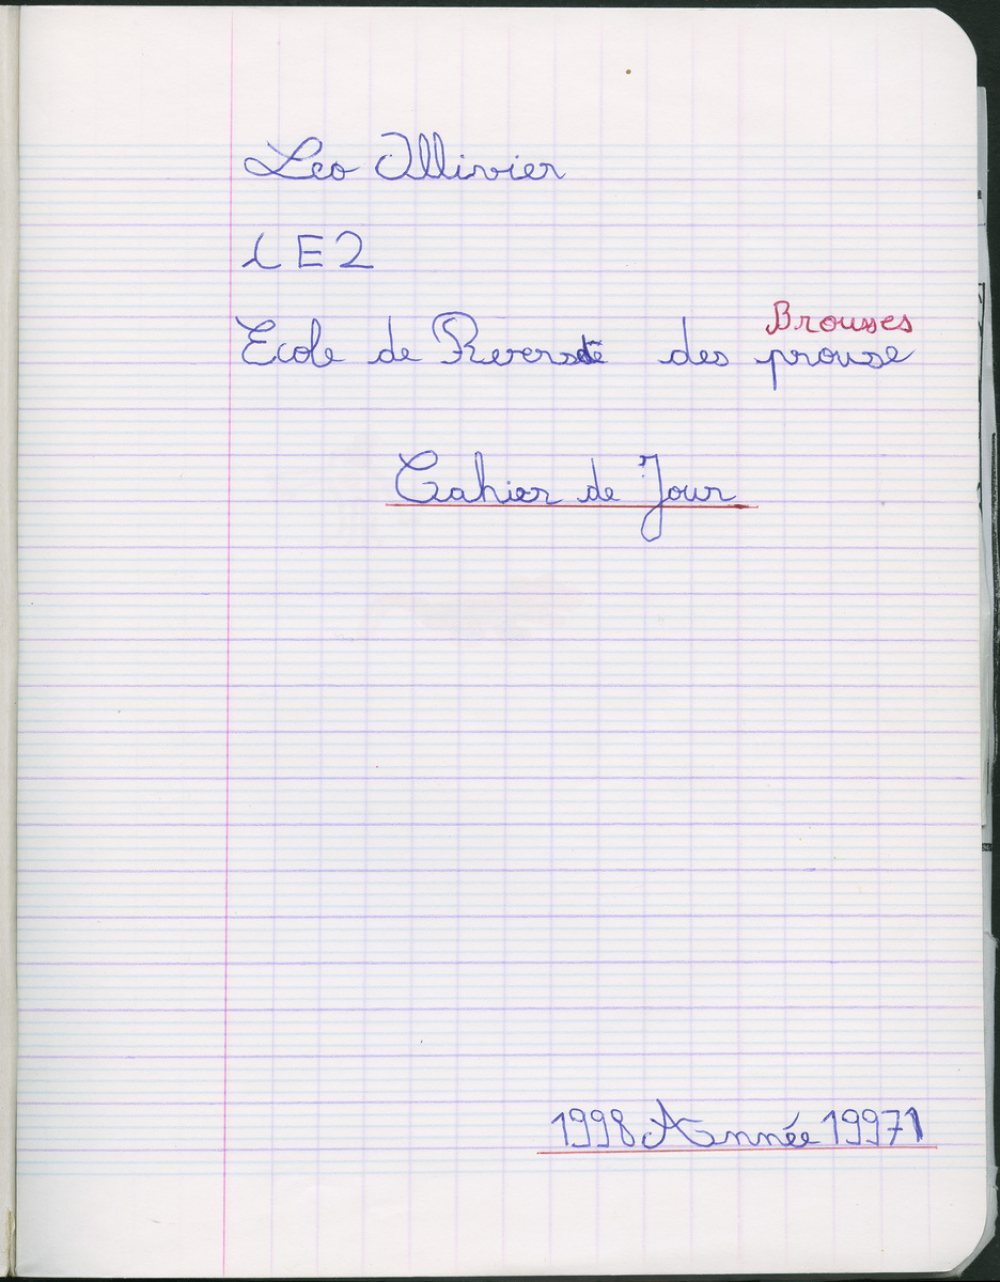 Leo Ollivier
CE2
Ecole de Reverdte des prouse
Brousses
Cahier de Jour
1998 Année 1997